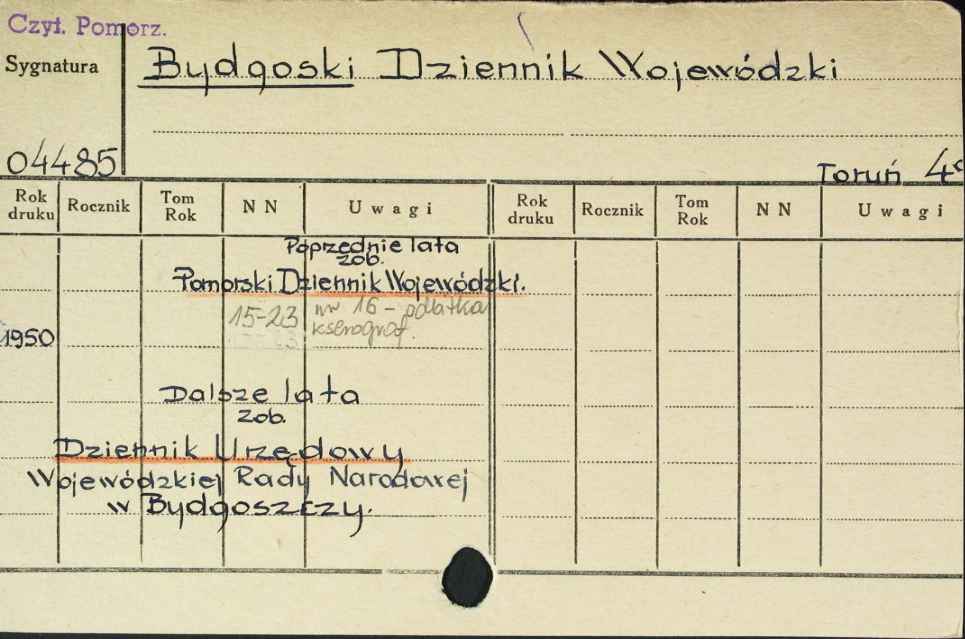 Czyt. Pomorz.
Sygnatura
Bydgoski Dziennik Wojewódzki
04485
Toruń 4°
Rok druku Rocznik Tom Rok NN Uwagi Rok druku Rocznik Tom Rok NN Uwagi
Poprzednie lata
zob.
Pomorski Dziennik Wojewódzki.
15-23 nr 16 - odbitka
kserograf.
1950
Dalsze lata
zob.
Dziennik Urzędowy
Wojewódzkiej Rady Narodowej
w Bydgoszczy.